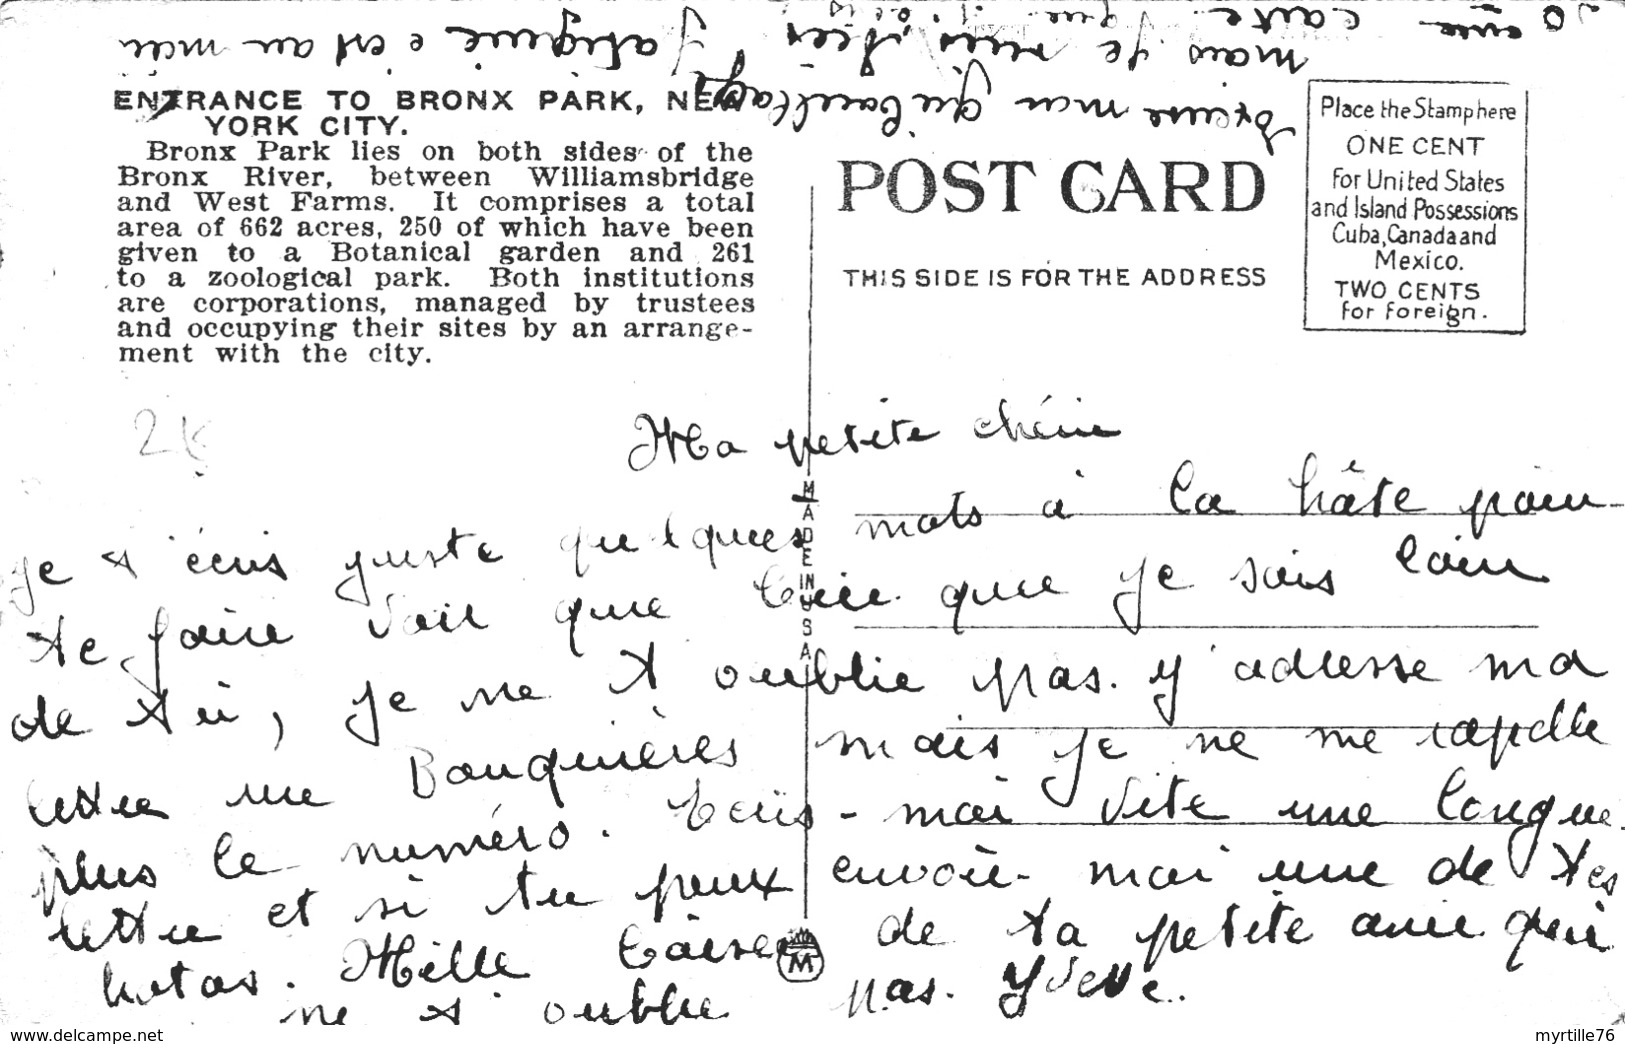 ENTRANCE TO BRONX PARK, NEW
YORK CITY.
Bronx Park lies on both sides of the
Bronx River, between Williamsbridge
and West Farms. It comprises a total
area of 662 acres, 250 of which have been
given to a Botanical garden and 261
to a zoological park. Both institutions
are corporations, managed by trustees
and occupying their sites by an arrange-
ment with the city.
POST CARD
THIS SIDE IS FOR THE ADDRESS
Place the Stamp here
ONE CENT
For United States
and Island Possessions
Cuba, Canada and
Mexico.
TWO CENTS
For Foreign.
MADE IN USA
M
Ma petite chérie
je t'écris juste quelques mots à la hâte pour
te faire voir que bien que je sois loin
de toi, je ne t'oublie pas. j'adresse ma
lettre rue Bouquières mais je ne me rapelle
plus le numéro. Ecris-moi vite une longue
lettre et si tu peux envoie-moi une de tes
hotos. Mille baisers de ta petite amie qui
ne t'oublie pas. Yvette.
mon gribouillage
mais je suis très fatiguée c'est au moins
la 20 ème carte que j'écris
www.delcampe.net
myrtille76